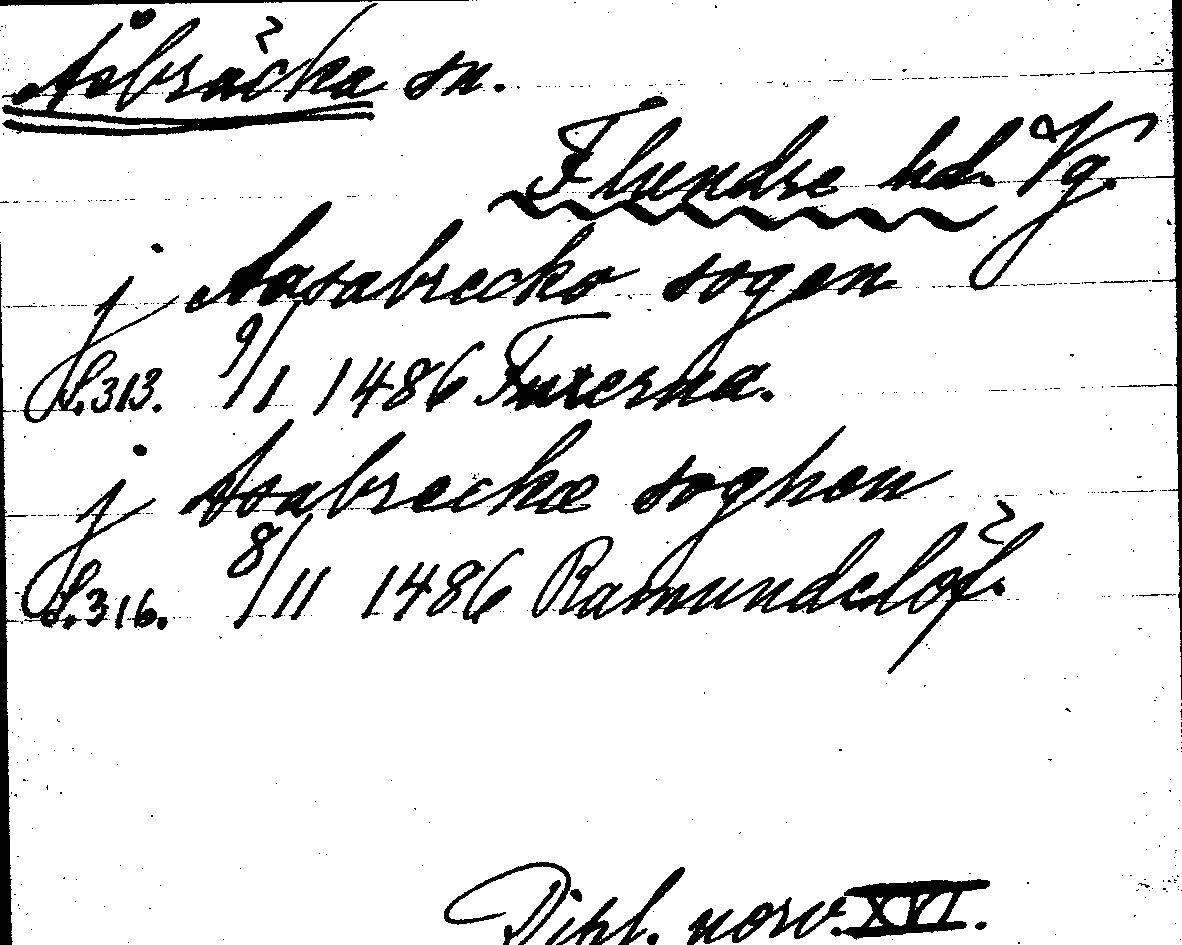 Åsbräcka sn.
Flundre hd. Vg.
j Aasabrecko sogen
S. 313. 9/1 1486 Furerna.
j Asabreckæ soghen
S. 316. 8/11 1486 Ramundelöf.
Dipl. norv. XVI.